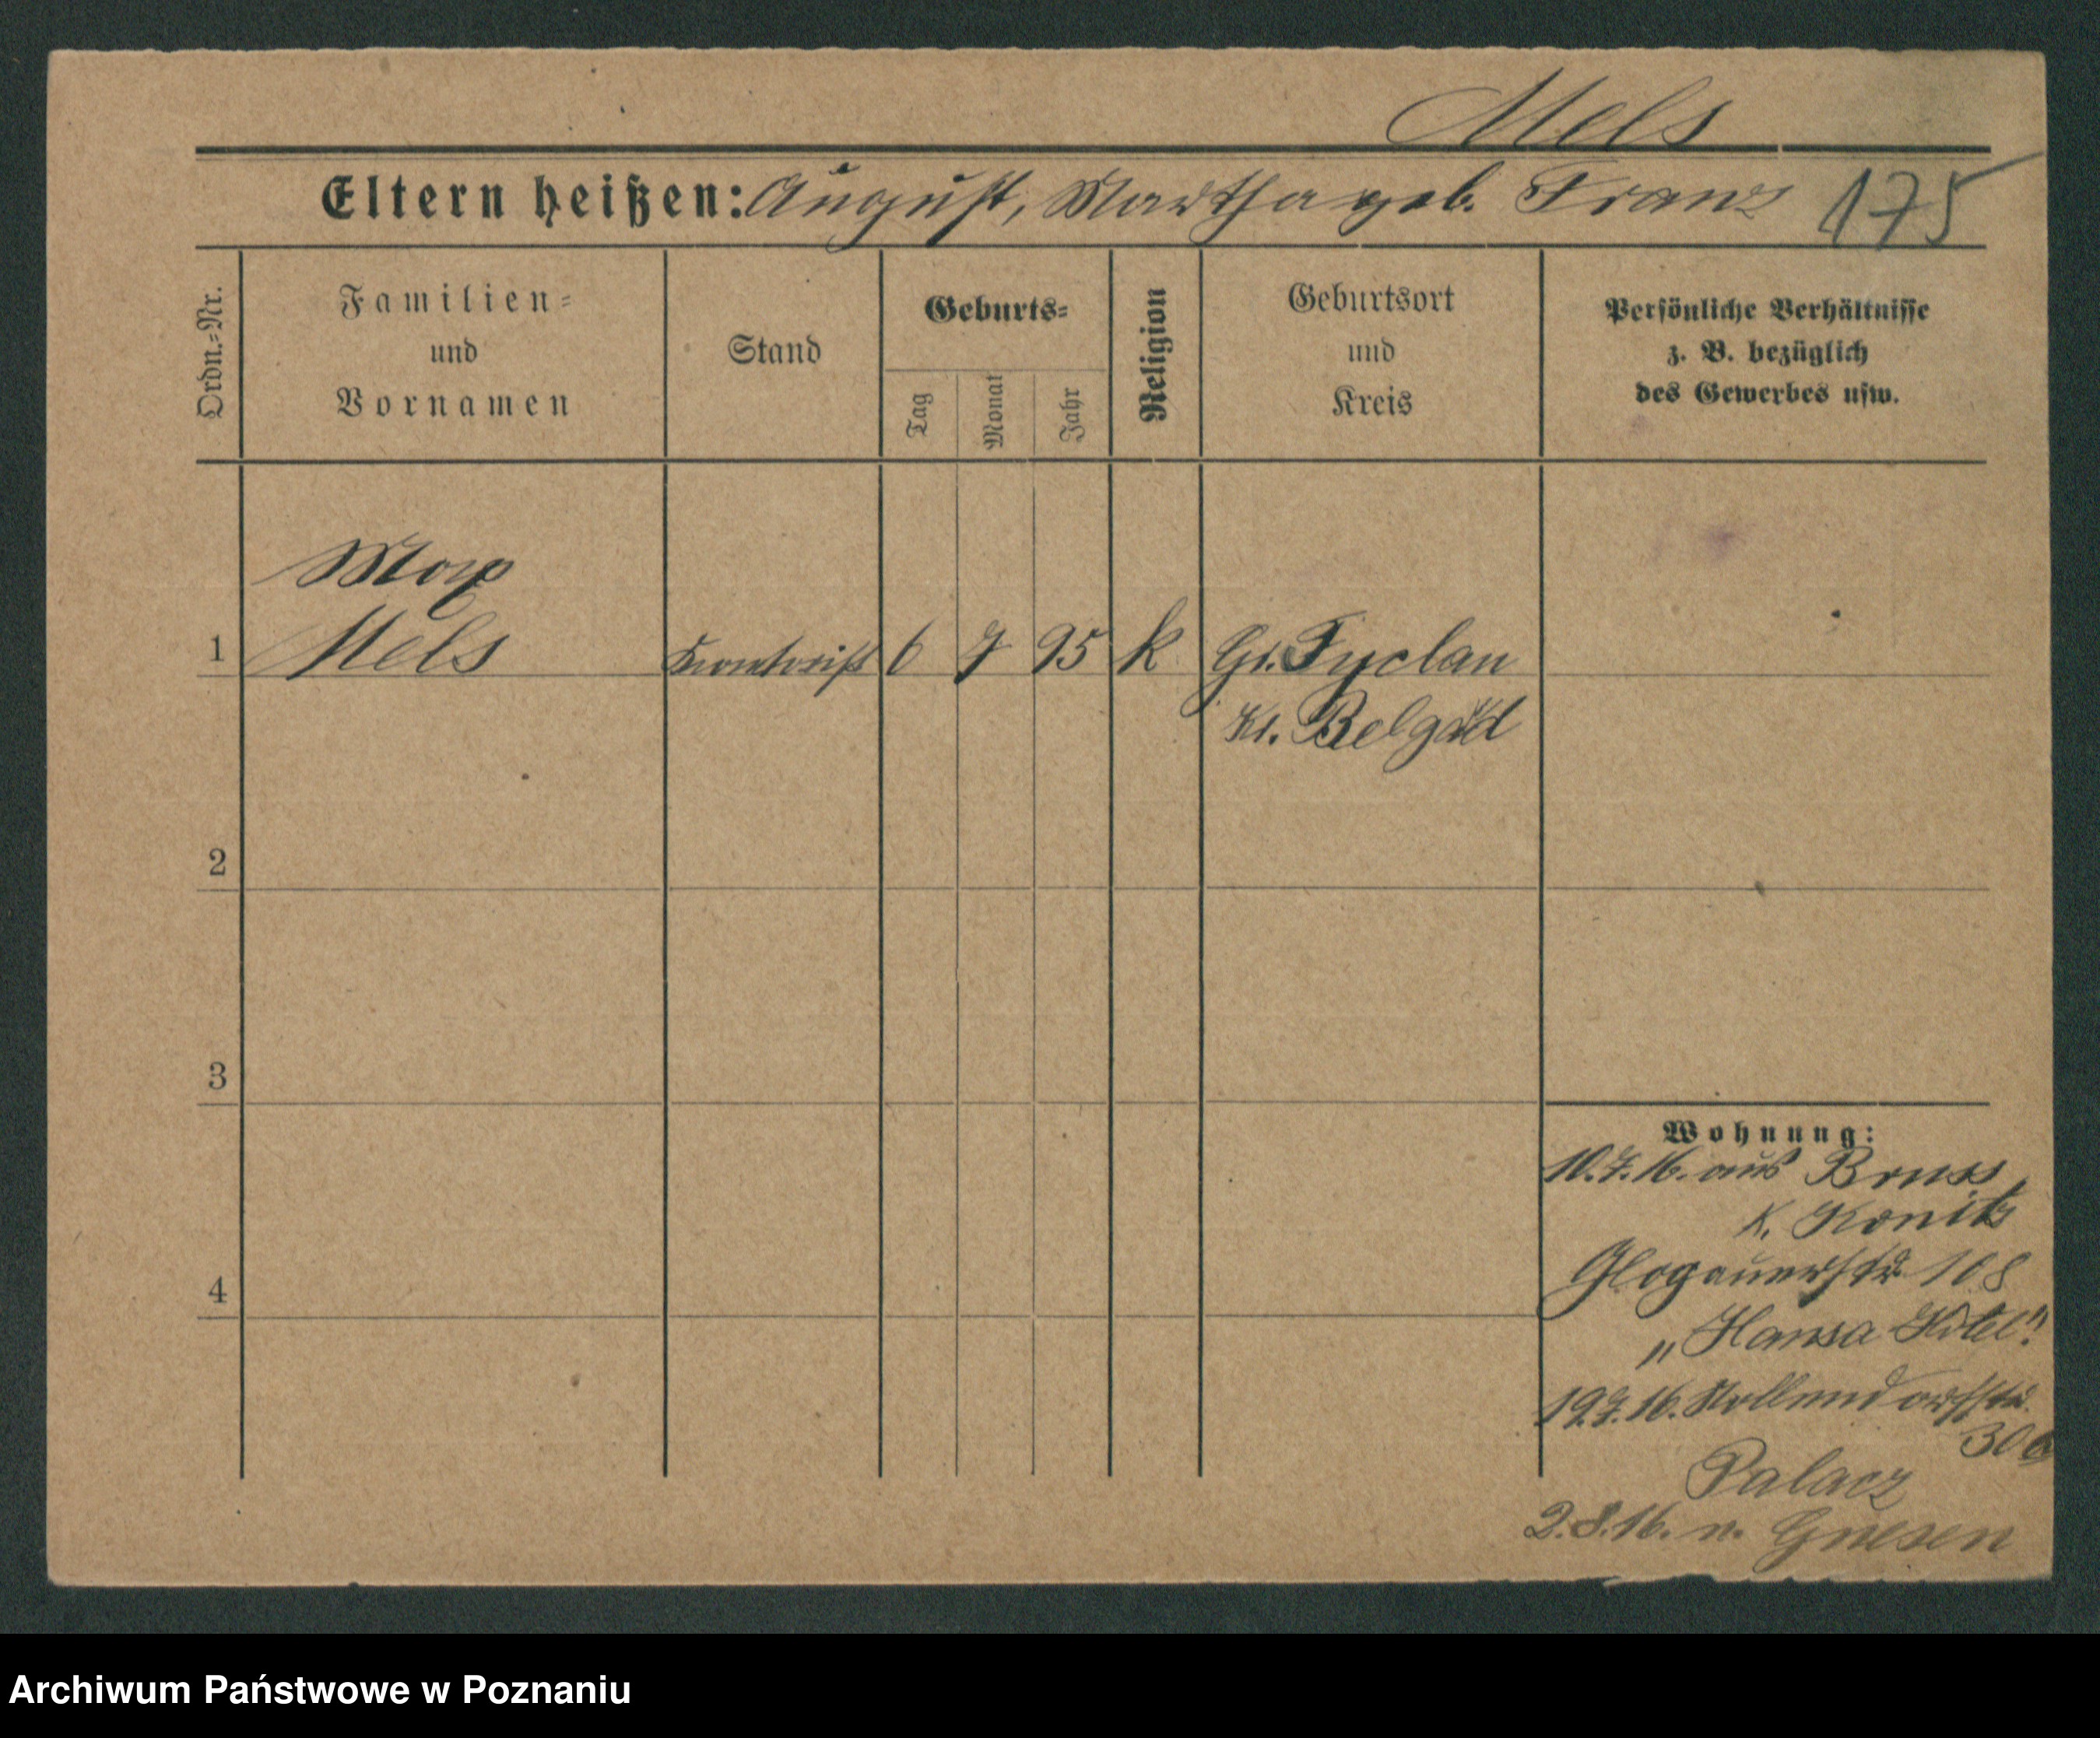 Mels
Eltern heißen: August, Martha geb. Franz 175
Ordn.-Nr.
Familien-
und
Vornamen
Stand
Geburts-
Tag
Monat
Jahr
Religion
Geburtsort
und
Kreis
Persönliche Verhältnisse
z. B. bezüglich
des Gewerbes usw.
Max
1 Mels Kontorist 6 7 95 k Gr. Tyclau
Kr. Belgard
2
3
4
Wohnung:
10.7.16. aus Bruss
K. Konitz
Glogauerstr. 108
„Hansa Hotel"
19.7.16. Nollendorfstr.
30
Palacz
2.8.16. n. Gnesen
Archiwum Państwowe w Poznaniu